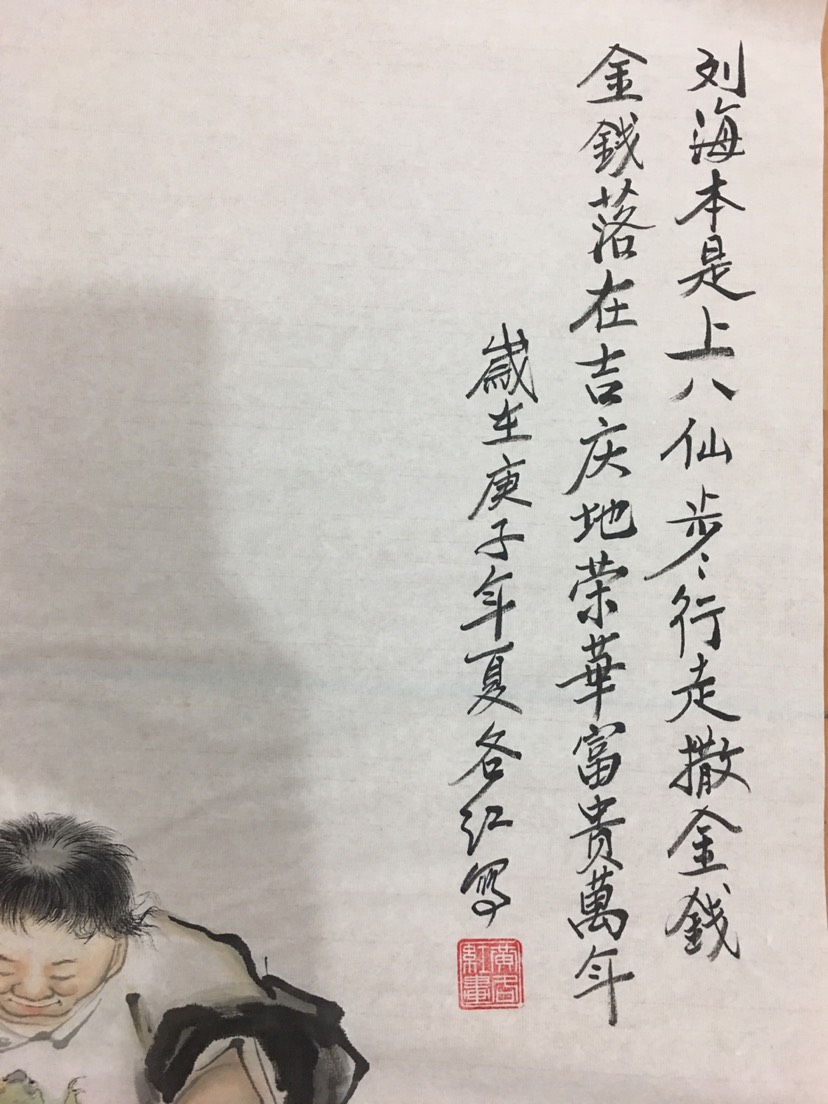 刘海本是上八仙步々行走撒金錢
金錢落在吉庆地荣華富貴萬年
歲在庚子年夏各红写